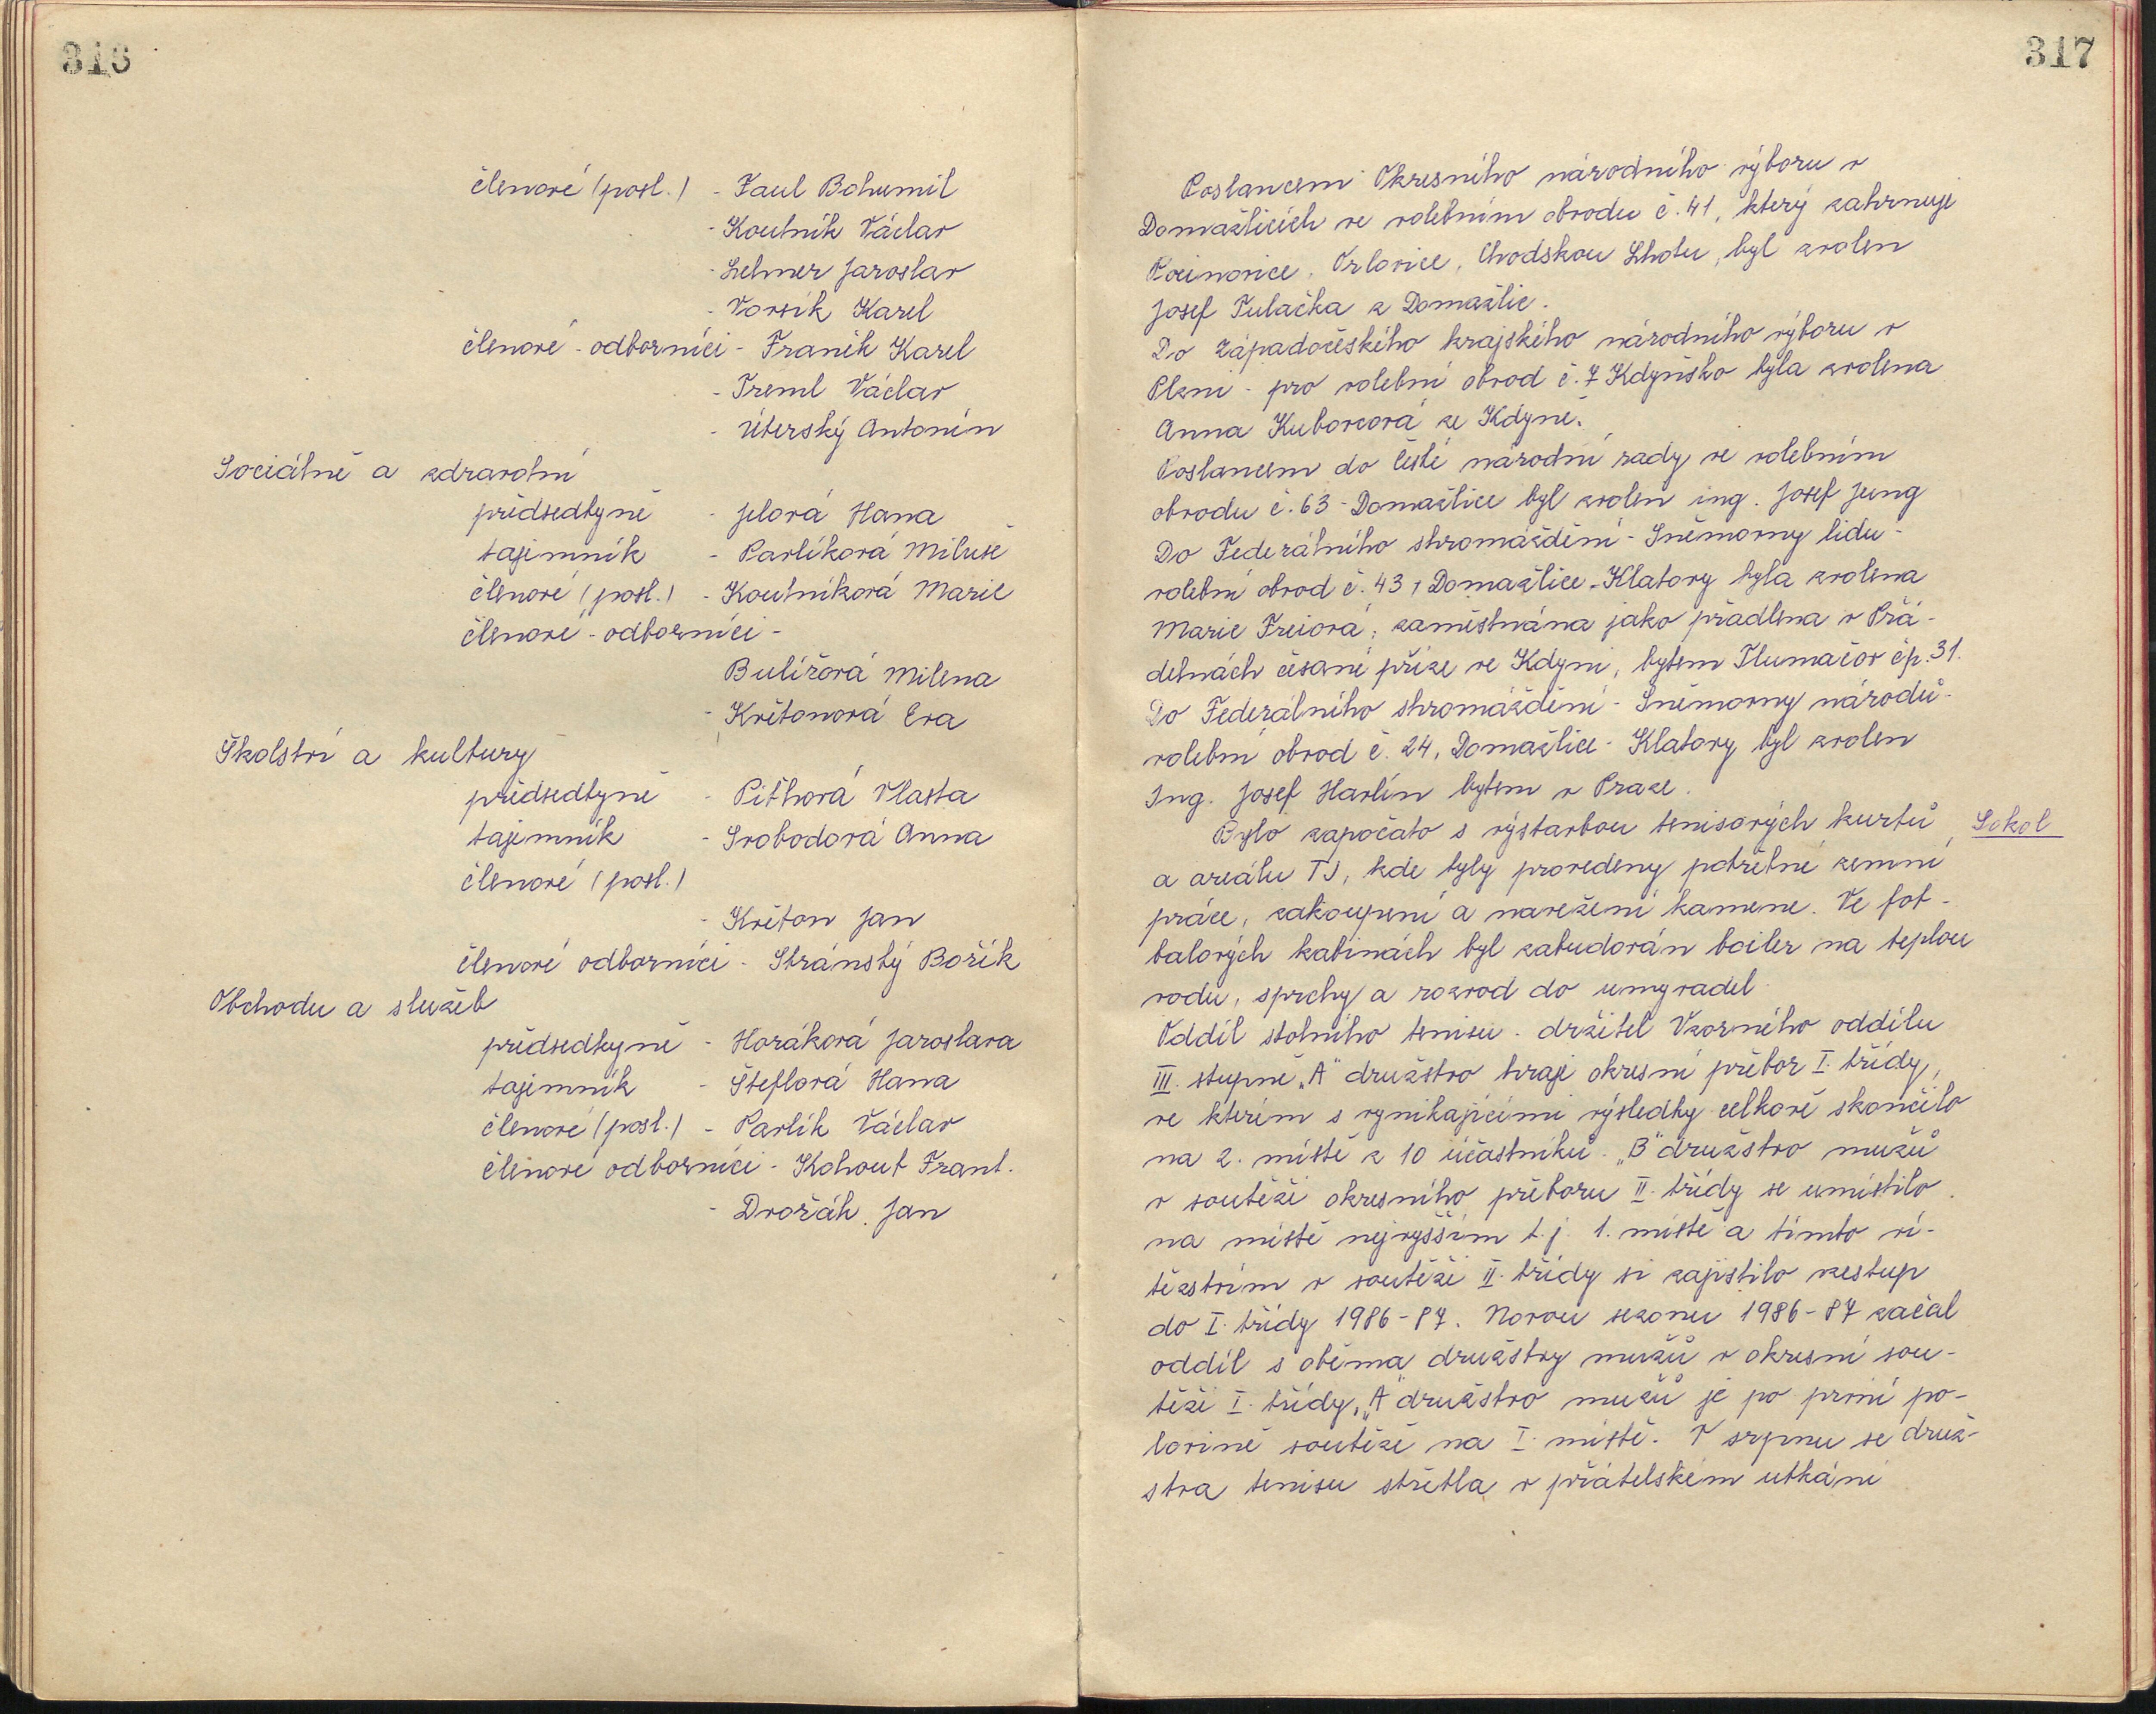 316
členové (posl.) - Faul Bohumil
- Koutník Václav
- Lehner Jaroslav
- Vorsík Karel
členové - odborníci - Franěk Karel
- Treml Václav
- Úterský Antonín
Sociálně a zdravotní
předsedkyně - Jelová Hana
tajemník - Pavlíková Miluše
členové (posl.) - Koutníková Marie
členové - odborníci -
Bulířová Milena
- Krětonová Eva
Školství a kultury
předsedkyně - Pithová Vlasta
tajemník - Svobodová Anna
členové (posl.)
- Krěton Jan
členové odborníci - Stránský Bořík
Obchodu a služeb
předsedkyně - Horáková Jaroslava
tajemník - Šteflová Hana
členové (posl.) - Pavlík Václav
členové odborníci - Kohout Frant.
- Dvořák Jan
317
Poslancem Okresního národního výboru v
Domažlicích ve volebním obvodu č. 41, který zahrnuje
Pocinovice, Orlovice, Chodskou Lhotu, byl zvolen
Josef Tulačka z Domažlic.
Do Západočeského krajského národního výboru v
Plzni - pro volební obvod č. 7 Kdyňsko byla zvolena
Anna Kuborcová ze Kdyně.
Poslancem do České národní rady ve volebním
obvodu č. 63 - Domažlice byl zvolen ing. Josef Jung
Do Federálního shromáždění - Sněmovny lidu -
volební obvod č. 43, Domažlice - Klatovy byla zvolena
Marie Freiová, zaměstnána jako přadlena v Přá-
delnách česané příze ve Kdyni, bytem Tlumačov čp. 31.
Do Federálního shromáždění - Sněmovny národů -
volební obvod č. 24, Domažlice - Klatovy byl zvolen
Ing. Josef Havlín bytem v Praze.
Bylo započato s výstavbou tenisových kurtů Sokol
a areálu TJ, kde byly provedeny potřebné zemní
práce, zakoupení a navezení kamene. Ve fot-
balových kabinách byl zabudován boiler na teplou
vodu, sprchy a rozvod do umyvadel.
Oddíl stolního tenisu - držitel Vzorného oddílu
III. stupně „A" družstvo hraje okresní přebor I. třídy,
ve kterém s vynikajícími výsledky celkově skončilo
na 2. místě z 10 účastníků. „B" družstvo mužů
v soutěži okresního přeboru II. třídy se umístilo
na místě nejvyšším t. j. 1. místě a tímto ví-
tězstvím v soutěži II. třídy si zajistilo vzestup
do I. třídy 1986-87. Novou sezonu 1986-87 začal
oddíl s oběma družstvy mužů v okresní sou-
těži I. třídy, „A" družstvo mužů je po první po-
lovině soutěže na I. místě. V srpnu se druž-
stva tenisu střetla v přátelském utkání